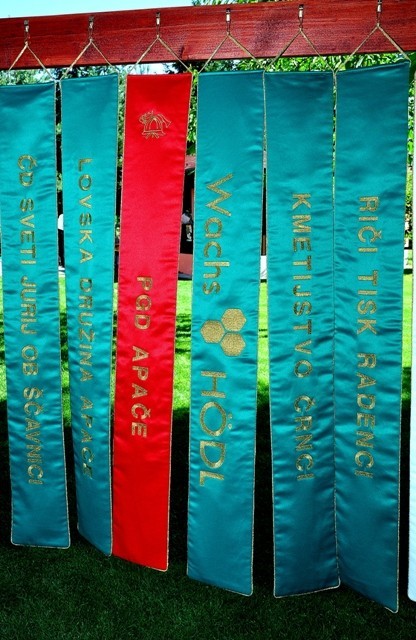 ČD SVETI JURIJ OB ŠČAVNICI
LOVSKA DRUŽINA APAČE
PGD APAČE
Wachs HÖDL
KMETIJSTVO ČRNCI
RIČI TISK RADENCI